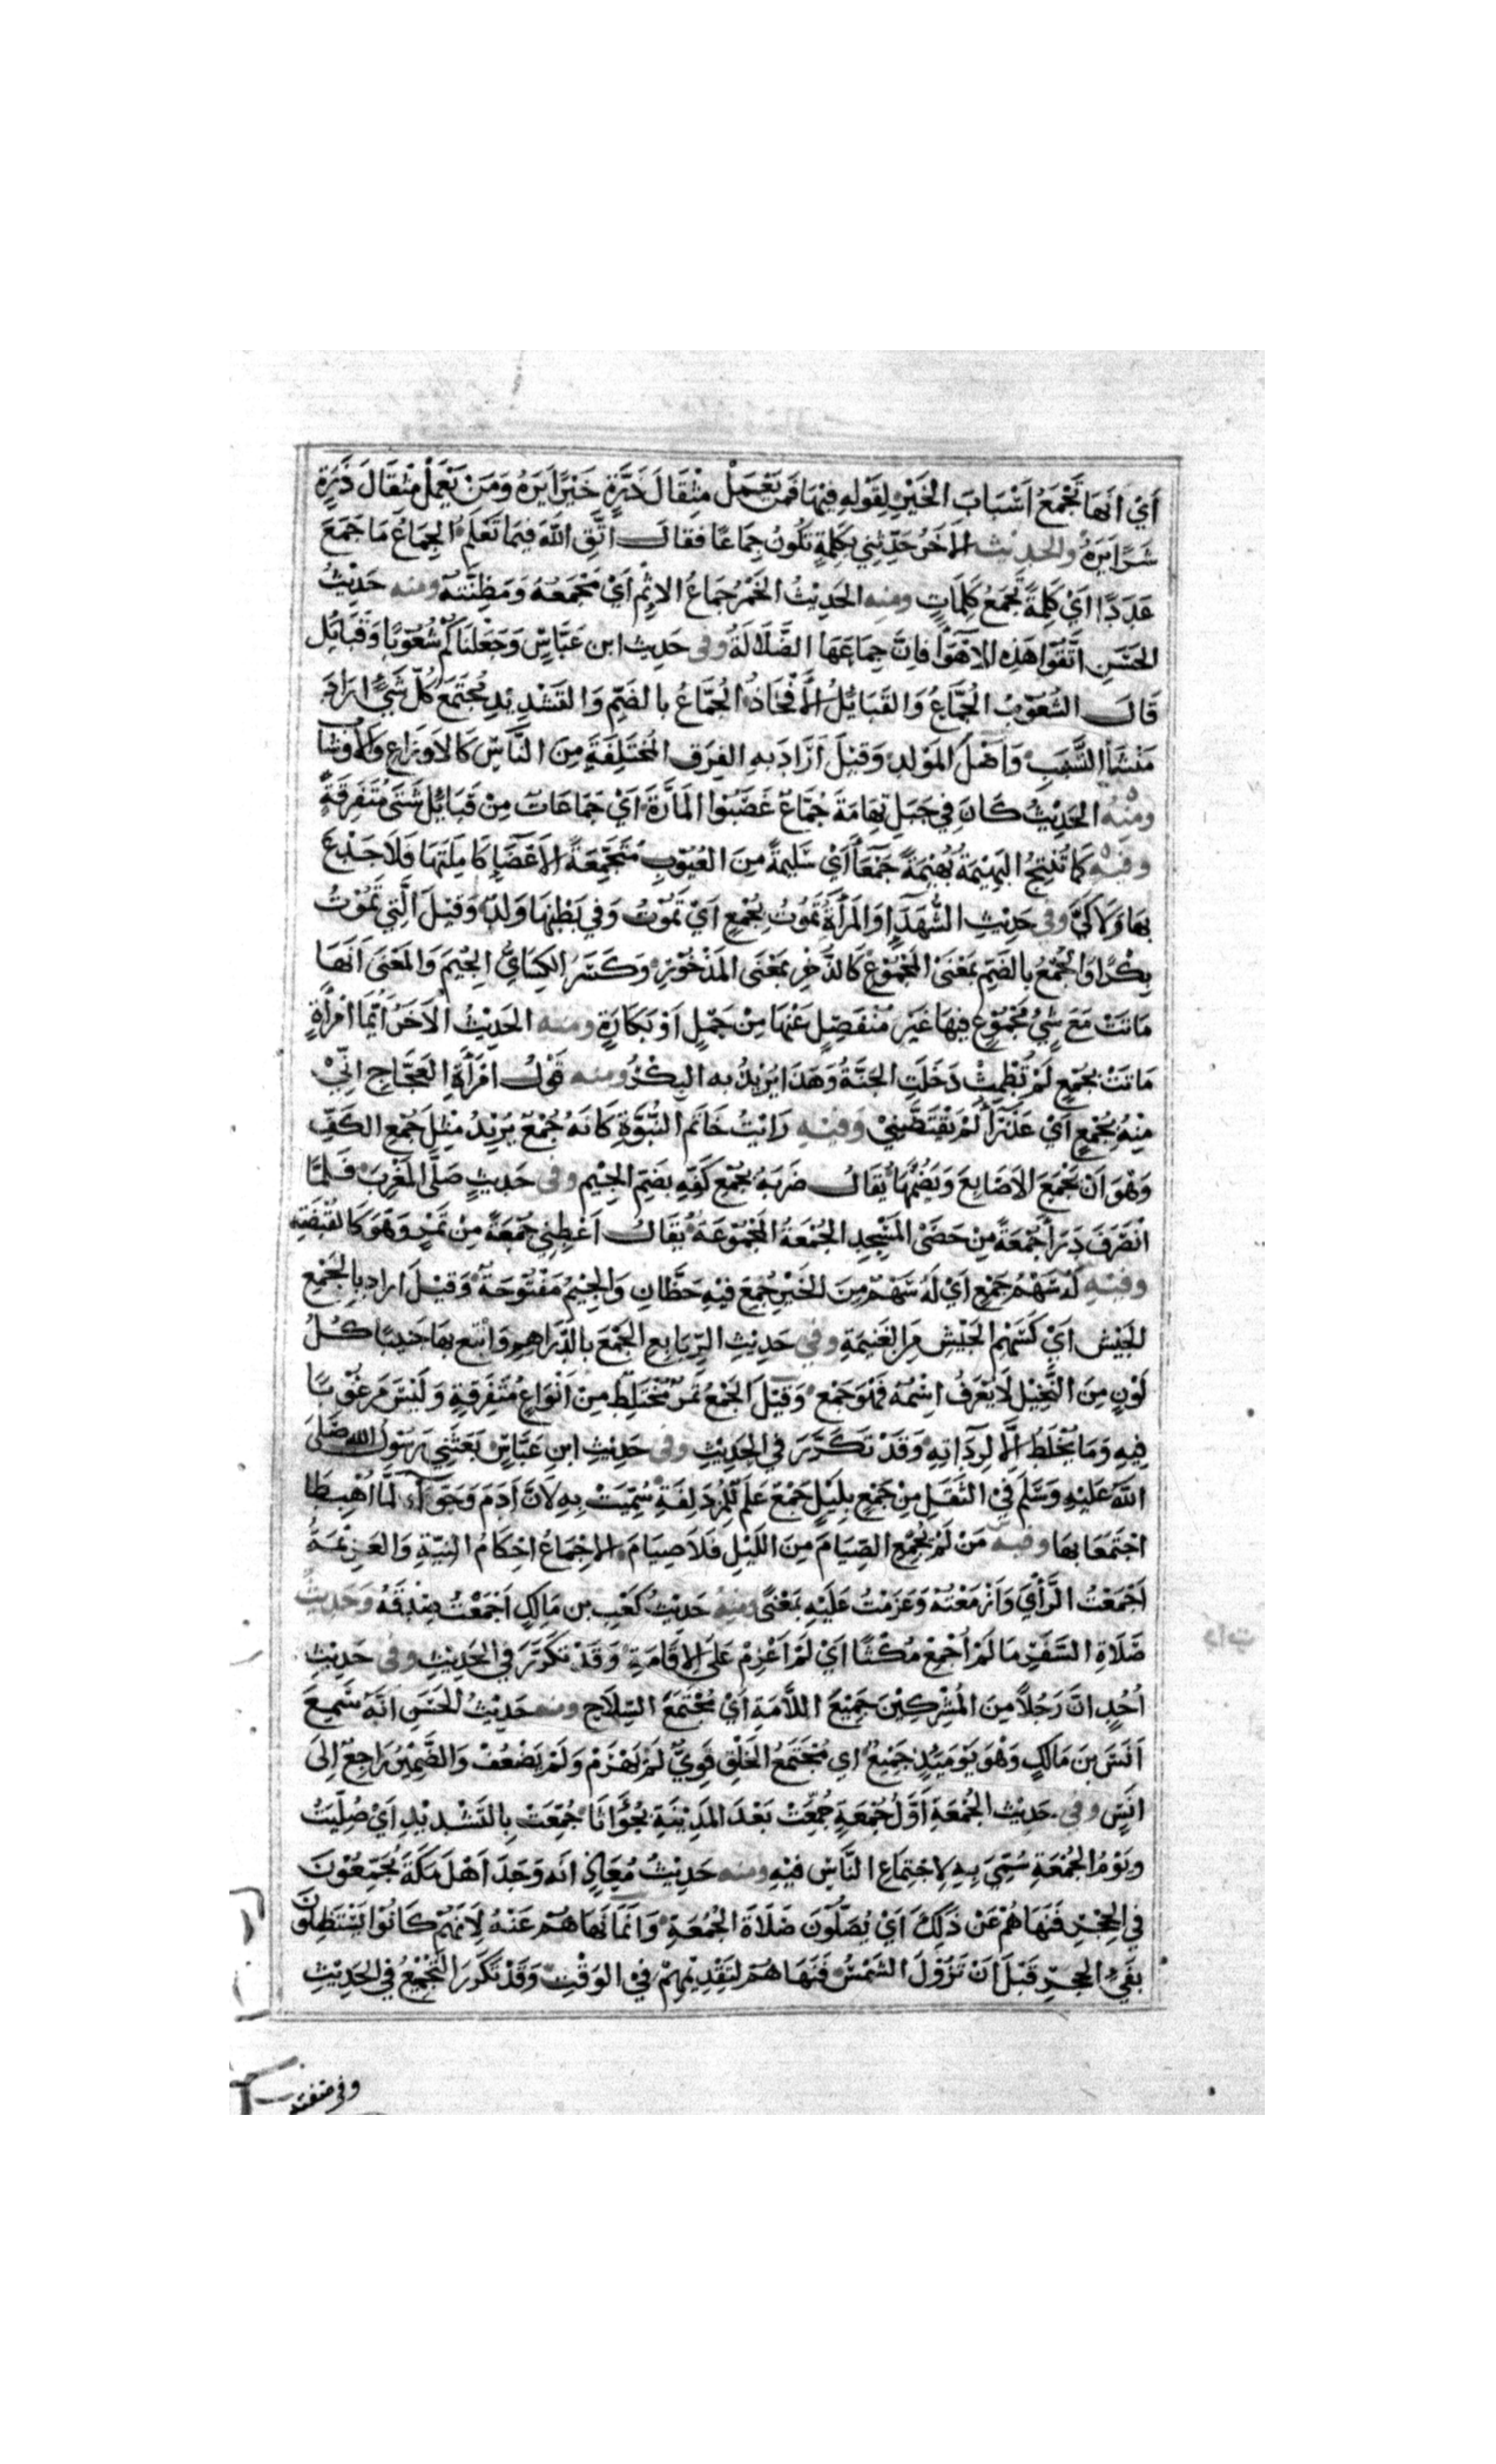 أَيْ أَنَّهَا تَجْمَعُ أَسْبَابَ الخَيْرِ لِقَوْلِهِ فِيْهَا فَمَنْ يَعْمَلْ مِثْقَالَ ذَرَّةٍ خَيْرًا يَرَهُ وَمَنْ يَعْمَلْ مِثْقَالَ ذَرَّةٍ
شَرًّا يَرَهُ والحديث الآخَرُ حَدِّثْنِي بِكَلِمَةٍ تَكُونُ جِمَاعًا فقال اتَّقِ اللَّهَ فِيمَا تَعْلَمُ الجِمَاعُ مَا جَمَعَ
عَدَدًا أَيْ كَلِمَةً تَجْمَعُ كَلِمَاتٍ ومنه الحَدِيْثُ الخَمْرُ جِمَاعُ الإِثْمِ أَيْ مَجْمَعُهُ وَمَظِنَّتُهُ ومنه حَدِيْثُ
الحَسَنِ اتَّقُوا هَذِهِ الأَهْوَاءَ فَإِنَّ جِمَاعَهَا الضَّلَالَةُ وفى حَدِيثِ ابن عَبَّاسٍ وَجَعَلْنَاكُمْ شُعُوْبًا وَقَبَائِل
قَالَ الشُّعُوْبُ الجُمَّاعُ وَالقَبَائِلُ الأَفْخَاذُ الجُمَّاعُ بالضَّمِّ وَالتَّشْدِيْدِ مُجْتَمَعُ كُلِّ شَيْءٍ ارَادَ
مَنْشَأَ النَّسَبِ وَأَصْلَ المَوْلِدِ وَقِيْلَ أَرَادَ بِهِ الفِرَقَ المُخْتَلِفَةَ مِنَ النَّاسِ كَالاَوزَاعِ وَالأَوْشَابِ
ومنه الحَدِيْثُ كَانَ فِي جَبَلِ تِهَامَةَ جُمَّاعٌ غَصَبُوا المَارَّةَ أَيْ جَمَاعَاتٌ مِنْ قَبَائِلَ شَتَّى مُتَفَرِّقَةٍ
وفيه كَمَا تُنْتَجُ البَهِيْمَةُ بَهِيْمَةً جَمْعَاءَ أَيْ سَلِيمَةً مِنَ العُيُوْبِ مُجْتَمِعَةَ الأَعْضَاءِ كَامِلَتَهَا فَلَا جَدْعَ
بِهَا وَلَا كَيَّ وفى حَدِيْثِ الشُّهَدَاءِ وَالمَرْأَةُ تَمُوْتُ بِجُمْعٍ أَيْ تَمُوْتُ وَفِي بَطْنِهَا وَلَدٌ وَقِيْلَ الَّتِي تَمُوْتُ
بِكْرًا وَالجُمْعُ بِالضَّمِّ بِمَعْنَى المَجْمُوْعِ كَالذُّخْرِ بِمَعْنَى المَذْخُوْرِ وَكَسَرَ الكِسَائِيُّ الجِيْمَ وَالمَعْنَى أَنَّهَا
مَاتَتْ مَعَ شَيْءٍ مَجْمُوْعٍ فِيهَا غَيْرَ مُنْفَصِلٍ عَنْهَا مِنْ حَمْلٍ أَوْ بَكَارَةٍ ومنه الحَدِيْثُ الآخَرُ أَيُّمَا امْرَأَةٍ
مَاتَتْ بِجُمْعٍ لَمْ تُطْمَثْ دَخَلَتِ الجَنَّةَ وَهَذَا يُرِيْدُ بِهِ البِكْرَ ومنه قَوْلُ امْرَأَةِ العَجَّاجِ إِنِّي
مِنْهُ بِجُمْعٍ أَيْ عَذْرَاءُ لَمْ يَفْتَضَّنِيْ وَفِيْهِ رَأَيْتُ خَاتَمَ النُّبُوَّةِ كَأَنَّهُ جُمْعٌ يُرِيْدُ مِثْلَ جُمْعِ الكَفِّ
وَهْوَ أَنْ تَجْمَعَ الأَصَابِعَ وَتَضُمَّهَا يُقَالُ ضَرَبَهُ بِجُمْعِ كَفِّهِ بِضَمِّ الجِيْمِ وفى حَدِيْثٍ صَلَّى المَغْرِبَ فَلَمَّا
انْصَرَفَ دَرَأَ جُمْعَةً مِنْ حَصَى المَسْجِدِ الجُمْعَةُ المَجْمُوْعَةُ يُقَالُ أَعْطِنِي جُمْعَةً مِنْ تَمْرٍ وَهُوَ كَالقُبْضَةِ
وفيه لَهُ سَهْمُ جَمْعٍ أَيْ لَهُ سَهْمٌ مِنَ الخَيْرِ جُمِعَ فِيْهِ حَظَّانِ وَالجِيْمُ مَفْتُوْحَةٌ وَقِيْلَ اراد بِالجَمْعِ
الجَيْشَ أَيْ كَسَهْمِ الجَيْشِ مِنَ الغَنِيمَةِ وفى حَدِيْثِ الرِّبَا بِعِ الجَمْعَ بِالدَّرَاهِمِ وَابْتَعْ بِهَا جَنِيبًا كُلُّ
لَوْنٍ مِنَ النَّخِيْلِ لَا يُعْرَفُ اسْمُهُ فَهْوَ جَمْعٌ وَقِيْلَ الجَمْعُ تَمْرٌ مُخْتَلِطٌ مِنْ أَنْوَاعٍ مُتَفَرِّقَةٍ وَلَيْسَ مَرْغُوْبًا
فِيهِ وَمَا يُخْلَطُ إِلَّا لِرَدَاءَتِهِ وَقَدْ تَكَرَّرَ فِي الحَدِيْثِ وفى حَدِيْثِ ابنِ عَبَّاسٍ بَعَثَنِي رَسُوْلُ اللهِ صَلَّى
اللَّهُ عَلَيْهِ وَسَلَّمَ فِي الثَّقَلِ مِنْ جَمْعٍ بِلَيْلٍ جَمْعٌ عَلَمٌ لِلْمُزْدَلِفَةِ سُمِّيَتْ بِهِ لأَنَّ آدَمَ وَحَوَّاءَ لَمَّا أُهْبِطَا
اجْتَمَعَا بِهَا وفيه مَنْ لَمْ يُجْمِعِ الصِّيَامَ مِنَ اللَّيْلِ فَلاَ صِيَامَ الإِجْمَاعُ إِحْكَامُ النِّيَّةِ وَالعَزِيْمَةُ
أَجْمَعْتُ الرَّأْيَ وَأَزْمَعْتُهُ وَعَزَمْتُ عَلَيْهِ بِمَعْنًى ومنه حَدِيْثُ كَعْبِ بنِ مَالِكٍ أَجْمَعْتُ صِدْقَهُ وَحَدِيْثُ
صَلَاةِ السَّفَرِ مَا لَمْ أُجْمِعْ مُكْثًا أَيْ لَمْ أَعْزِمْ عَلَى الإِقَامَةِ وَقَدْ تَكَرَّرَ فِي الحَدِيْثِ وفى حَدِيْثِ
أُحُدٍ انَّ رَجُلاً مِنَ المُشْرِكِيْنَ جَمِيْعَ اللَّأْمَةِ أَيْ مُجْتَمِعَ السِّلَاحِ ومنه حَدِيْثُ الحَسَنِ أَنَّهُ سَمِعَ
أَنَسَ بنَ مَالِكٍ وَهْوَ يَوْمَئِذٍ جَمِيْعٌ اي مُجْتَمِعُ الخَلْقِ قَوِيٌّ لَمْ يَهْرَمْ وَلَمْ يَضْعُفْ وَالضَّمِيْرُ رَاجِعٌ إِلَى
أَنَسٍ وفى حَدِيْثِ الجُمُعَةِ أَوَّلُ جُمْعَةٍ جُمِّعَتْ بَعْدَ المَدِيْنَةِ بِجُؤَاثَا جُمِّعَتْ بِالتَشْدِيْدِ أَيْ صُلِّيَتْ
وَيَوْمُ الجُمْعَةِ سُمِّيَ بِهِ لِاجْتِمَاعِ النَّاسِ فِيْهِ ومنه حَدِيْثُ مُعَاذٍ انَّهُ وَجَدَ أَهْلَ مَكَّةَ يُجَمِّعُوْنَ
فِي الحِجْرِ فَنَهَاهُمْ عَنْ ذَلِكَ أَيْ يُصَلُّوْنَ صَلَاةَ الجُمُعَةِ وَإِنَّمَا نَهَاهُمْ عَنْهُ لِأَنَّهُمْ كَانُوْا يَسْتَظِلُّوْنَ
بِفَيْءِ الحِجْرِ قَبْلَ أَنْ تَزُوْلَ الشَّمْسُ فَنَهَاهُمْ لِتَقْدِيْمِهِمْ فِي الوَقْتِ وَقَدْ تَكَرَّرَ التَّجْمِيْعُ فِي الحَدِيْثِ